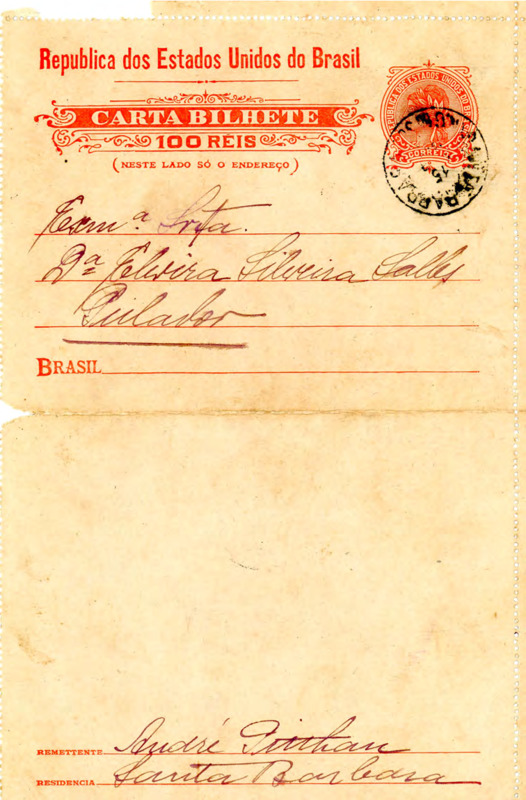 Republica dos Estados Unidos do Brasil
CARTA BILHETE
100 RÉIS
(NESTE LADO SÓ O ENDEREÇO)
REPUBLICA DOS ESTADOS UNIDOS DO BRASIL
CORREIO
15
Exmª. Srta.
Dª Elvira Silveira Salles
Pulador
BRASIL
REMETTENTE André
RESIDENCIA Santa Barbara